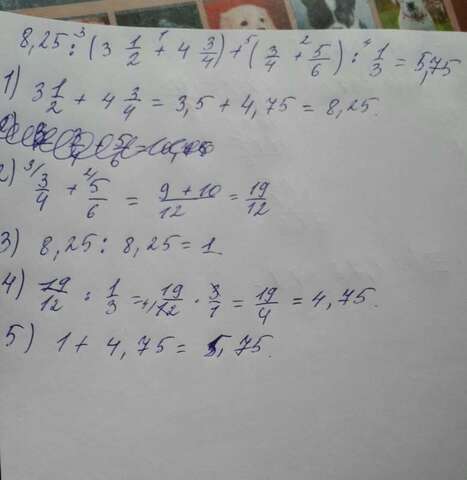 8,25 :³ (3 1/2 +¹ 4 3/4) +⁵ (3/4 +² 5/6) :⁴ 1/3 = 5,75
1) 3 1/2 + 4 3/4 = 3,5 + 4,75 = 8,25.
2) ³⁾ 3/4 + ²⁾ 5/6 = (9 + 10)/12 = 19/12
3) 8,25 : 8,25 = 1
4) 19/12 : 1/3 = 19/12 · 3/1 = 19/4 = 4,75.
5) 1 + 4,75 = 5,75.